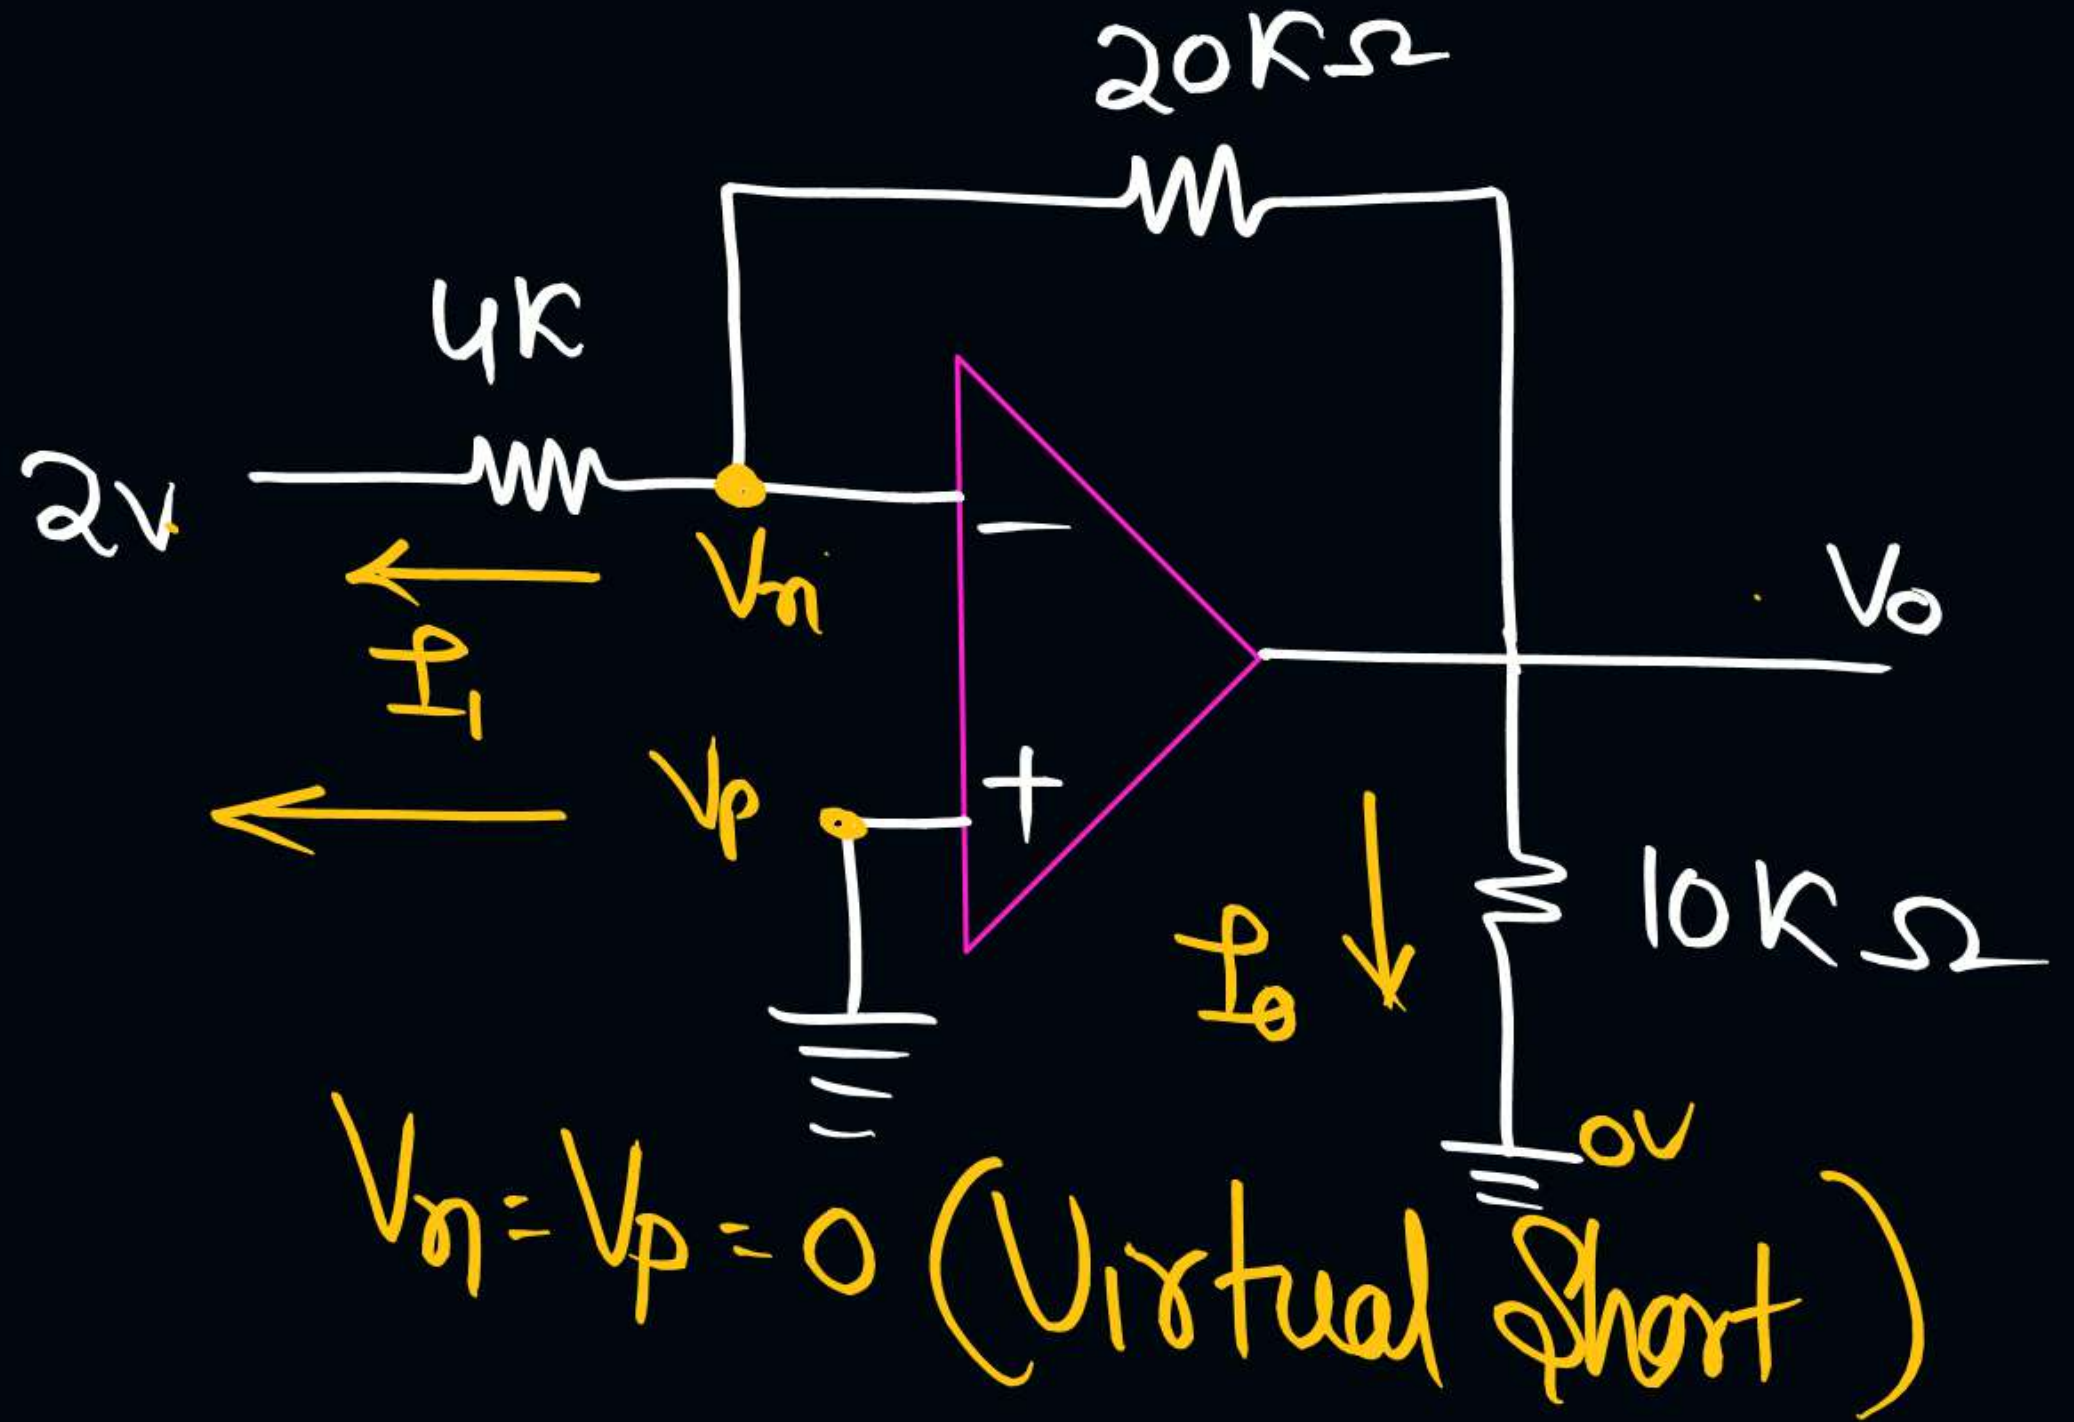 20KΩ
4K
2V
Vn
I1
Vp
−
+
Vo
Io
10KΩ
0V
Vn = Vp = 0 (Virtual Short)